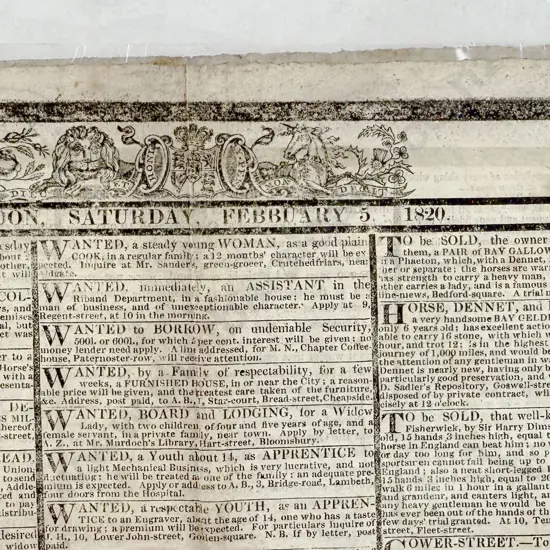 DON, SATURDAY, FEBBUARY 5, 1820.
WANTED, a steady young WOMAN, as a good plain
COOK, in a regular family: a 12 months' character will be ex-
pected. Inquire at Mr. Sanders, green-grocer, Crutchedfriars, near
Aldgate.
WANTED, immediately, an ASSISTANT in the
Riband Department, in a fashionable house; he must be a
man of business, and of unexceptionable character. Apply at
Regent-street, at 10 in the morning.
WANTED to BORROW, on undeniable Security,
500l. or 600l., for which 5 per cent. interest will be given: no
money lender need apply. A line addressed, for M. N., Chapter Coffee-
house, Paternoster-row, will receive attention.
WANTED, by a Family of respectability, for a few
weeks, a FURNISHED HOUSE, in or near the City; a reason-
able price will be given, and the greatest care taken of the furniture,
&c. Address, post paid, to A. B., 7, Star-court, Bread-street, Cheapside.
WANTED, BOARD and LODGING, for a Widow
Lady, with two children, of four and five years of age, and a
female servant, in a private family, near town. Apply by letter, to
A. Z., at Mr. Murdoch's Library, Hart-street, Bloomsbury.
WANTED, a Youth about 14, as APPRENTICE to
a light Mechanical Business, which is very lucrative, and not
fluctuating: he will be treated as one of the family: an adequate pre-
mium is expected. Apply or address to A. B., 3, Bridge-road, Lambeth,
four doors from the Hospital.
WANTED, a respectable YOUTH, as an APPREN-
TICE to an Engraver, about the age of 14, one who has a taste
for drawing; a premium will be expected. For particulars inquire of
J. H., 10, Lower John-street, Golden-square. N. B. If by letter, post
paid.
TO be SOLD, the owner
them, a PAIR of BAY GALLOW
in a Phaeton, which, with a Dennet,
her or separate; the horses are war
as strength to carry a heavy man,
other carries a lady, and is a famous
ine-news, Bedford-square. A trial
HORSE, DENNET, and
a very handsome BAY GELD
only 6 years old; has excellent acti
able to carry 16 stone, with which w
hour, and trot 12; is in the highest
journey of 1,000 miles, and would be
the attention of any gentleman in w
Dennet is nearly new, having only b
particularly good preservation, and
D. Sadler's Repository, Goswell-stre
disposed of by private contract, wi
cisely at 12 o'clock.
TO be SOLD, that well-k
Fisherwick, by Sir Harry Dims
old, 15 hands 3 inches high, equal t
horse in England can beat him; no
or day too long for him, and so p
sportsmen cannot fail being up to
England; also a neat short-legged
15 hands 2 inches high, equal to 20
walk 6 miles in 1 hour in gallant
and grandeur, and canters light, a
any heavy gentleman he would be
has ever been out of the hands of th
few days' trial granted. At 10, Ten
street, Fleet-street.
TOWER-STREET.—To